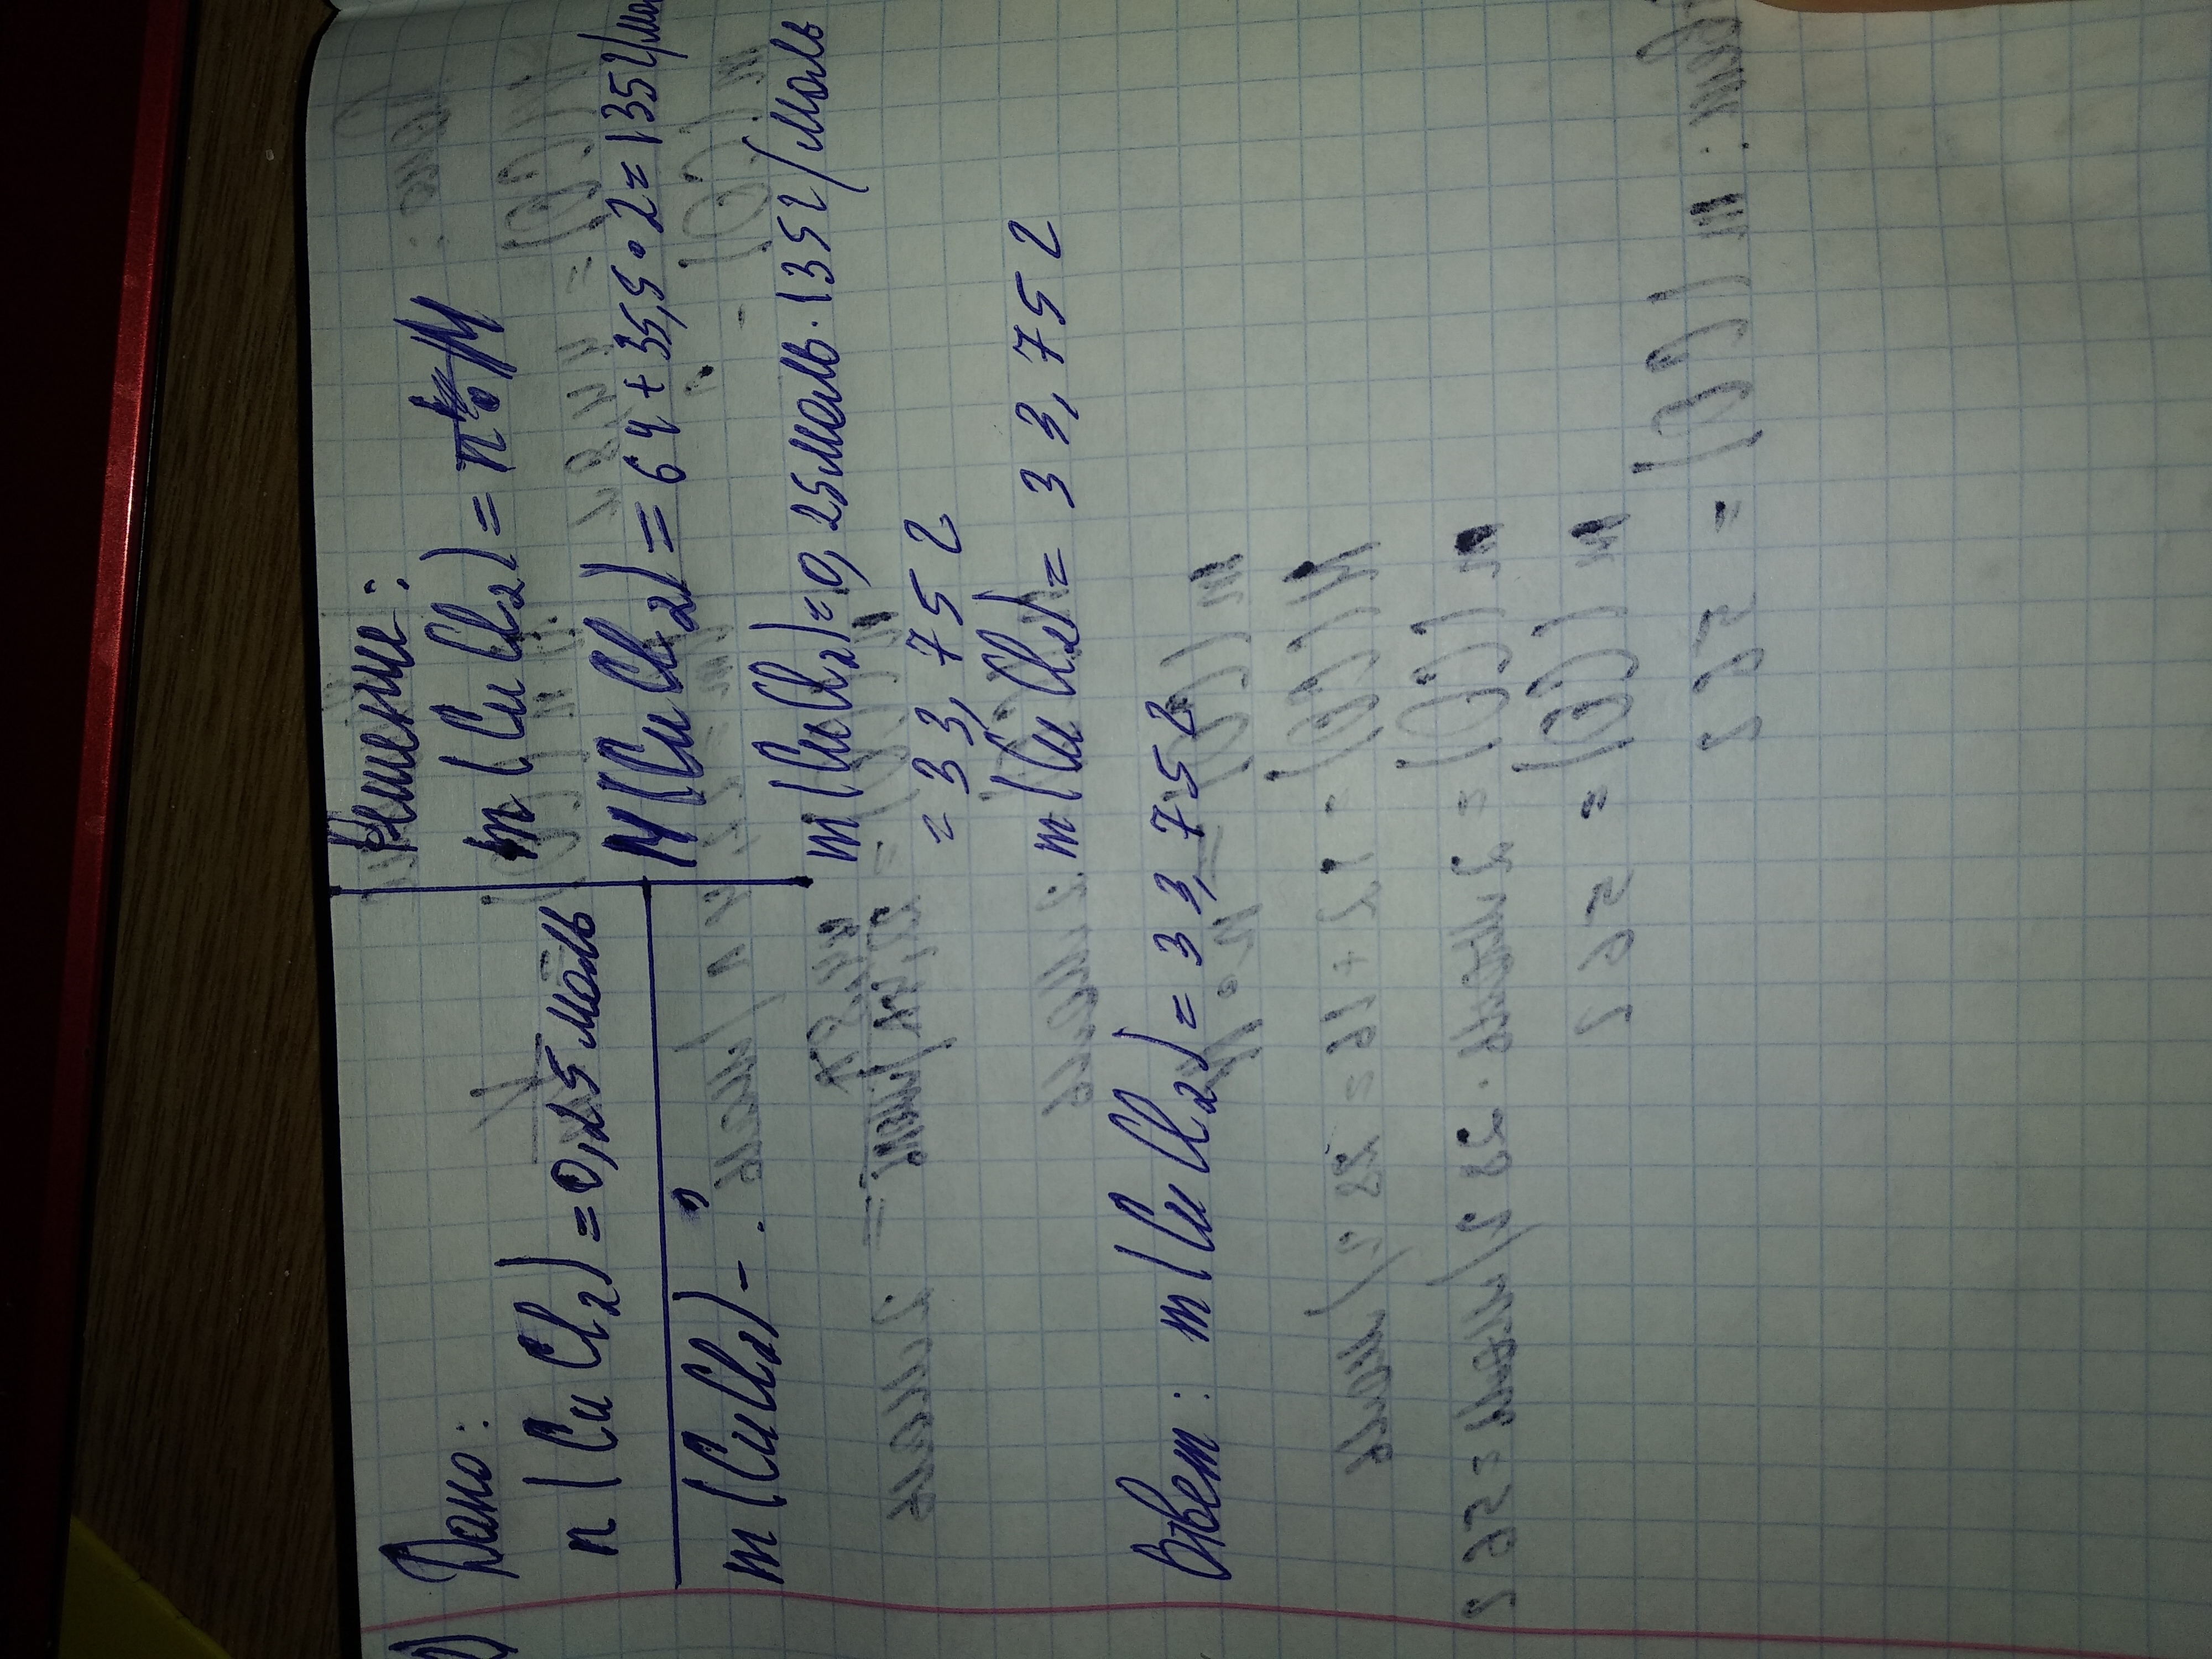 Дано:
n(CuCl₂)=0,25моль
m(CuCl₂)-?
Решение:
m(CuCl₂)=n·M
M(CuCl₂)=64+35,5·2=135г/мол
m(CuCl₂)=0,25моль·135г/моль
=33,75г
m(CuCl₂)=33,75г
Ответ: m(CuCl₂)=33,75г